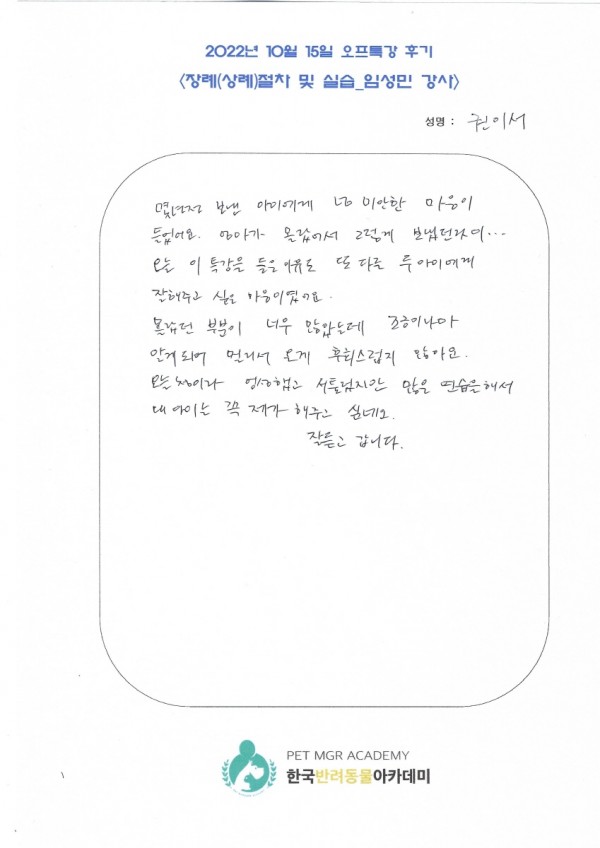 2022년 10월 15일 오프특강 후기
<장례(상례)절차 및 실습_임성민 강사>
성명 : 권이서
몇년전 보낸 아이에게 너무 미안한 마음이
들었어요. 엄마가 몰랐어서 그렇게 보냈던라며...
오늘 이 특강을 들은 이유로 또 다른 두 아이에게
잘해주고 싶은 마음이였어요.
몰랐던 부분이 너무 많았는데 조금이나마
알게되어 멀리서 온게 후회스럽지 않아요.
오늘 첨이라 엉성했고 서툴렀지만 많은 연습을해서
내 아이는 꼭 제가 해주고 싶네요.
잘듣고 갑니다.
PET MGR ACADEMY
한국반려동물아카데미